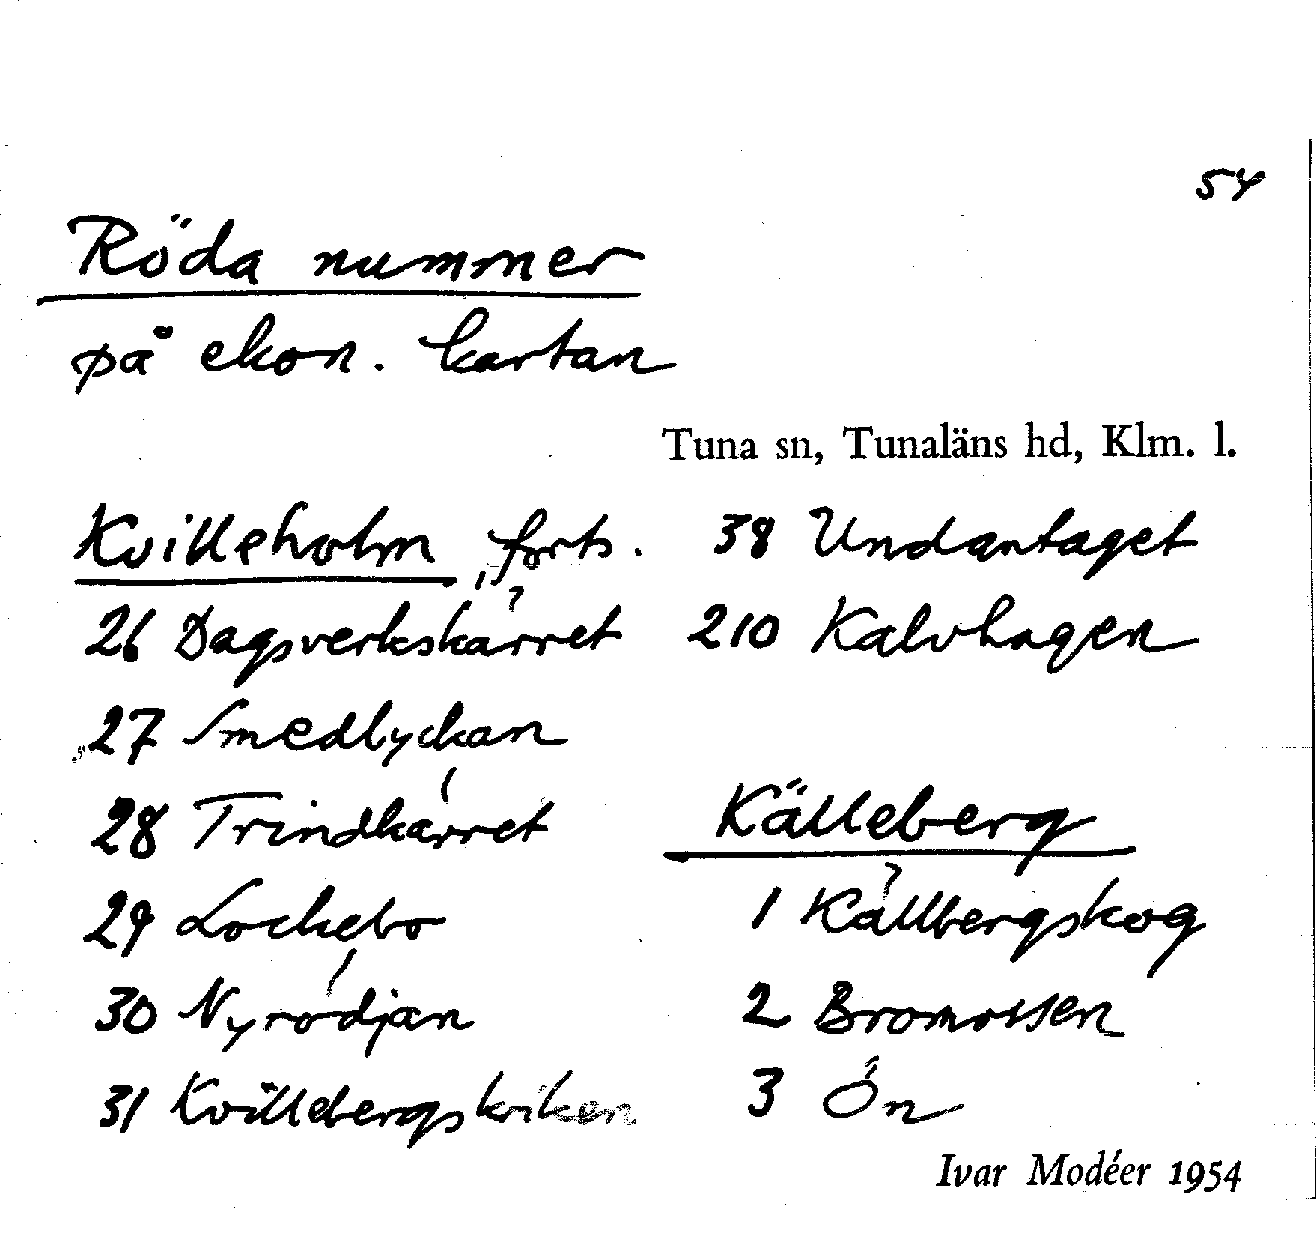 54
Röda nummer
på ekon. kartan
Tuna sn, Tunaläns hd, Klm. l.
Kvilleholm, forts.
26 Dagsverkskärret
27 Smedlyckan
28 Trindkärret
29 Lockebo
30 Nyrödjan
31 Kvillebergskriken
38 Undantaget
210 Kalvhagen
Källeberg
1 Källbergskog
2 Bromossen
3 Ön
Ivar Modéer 1954